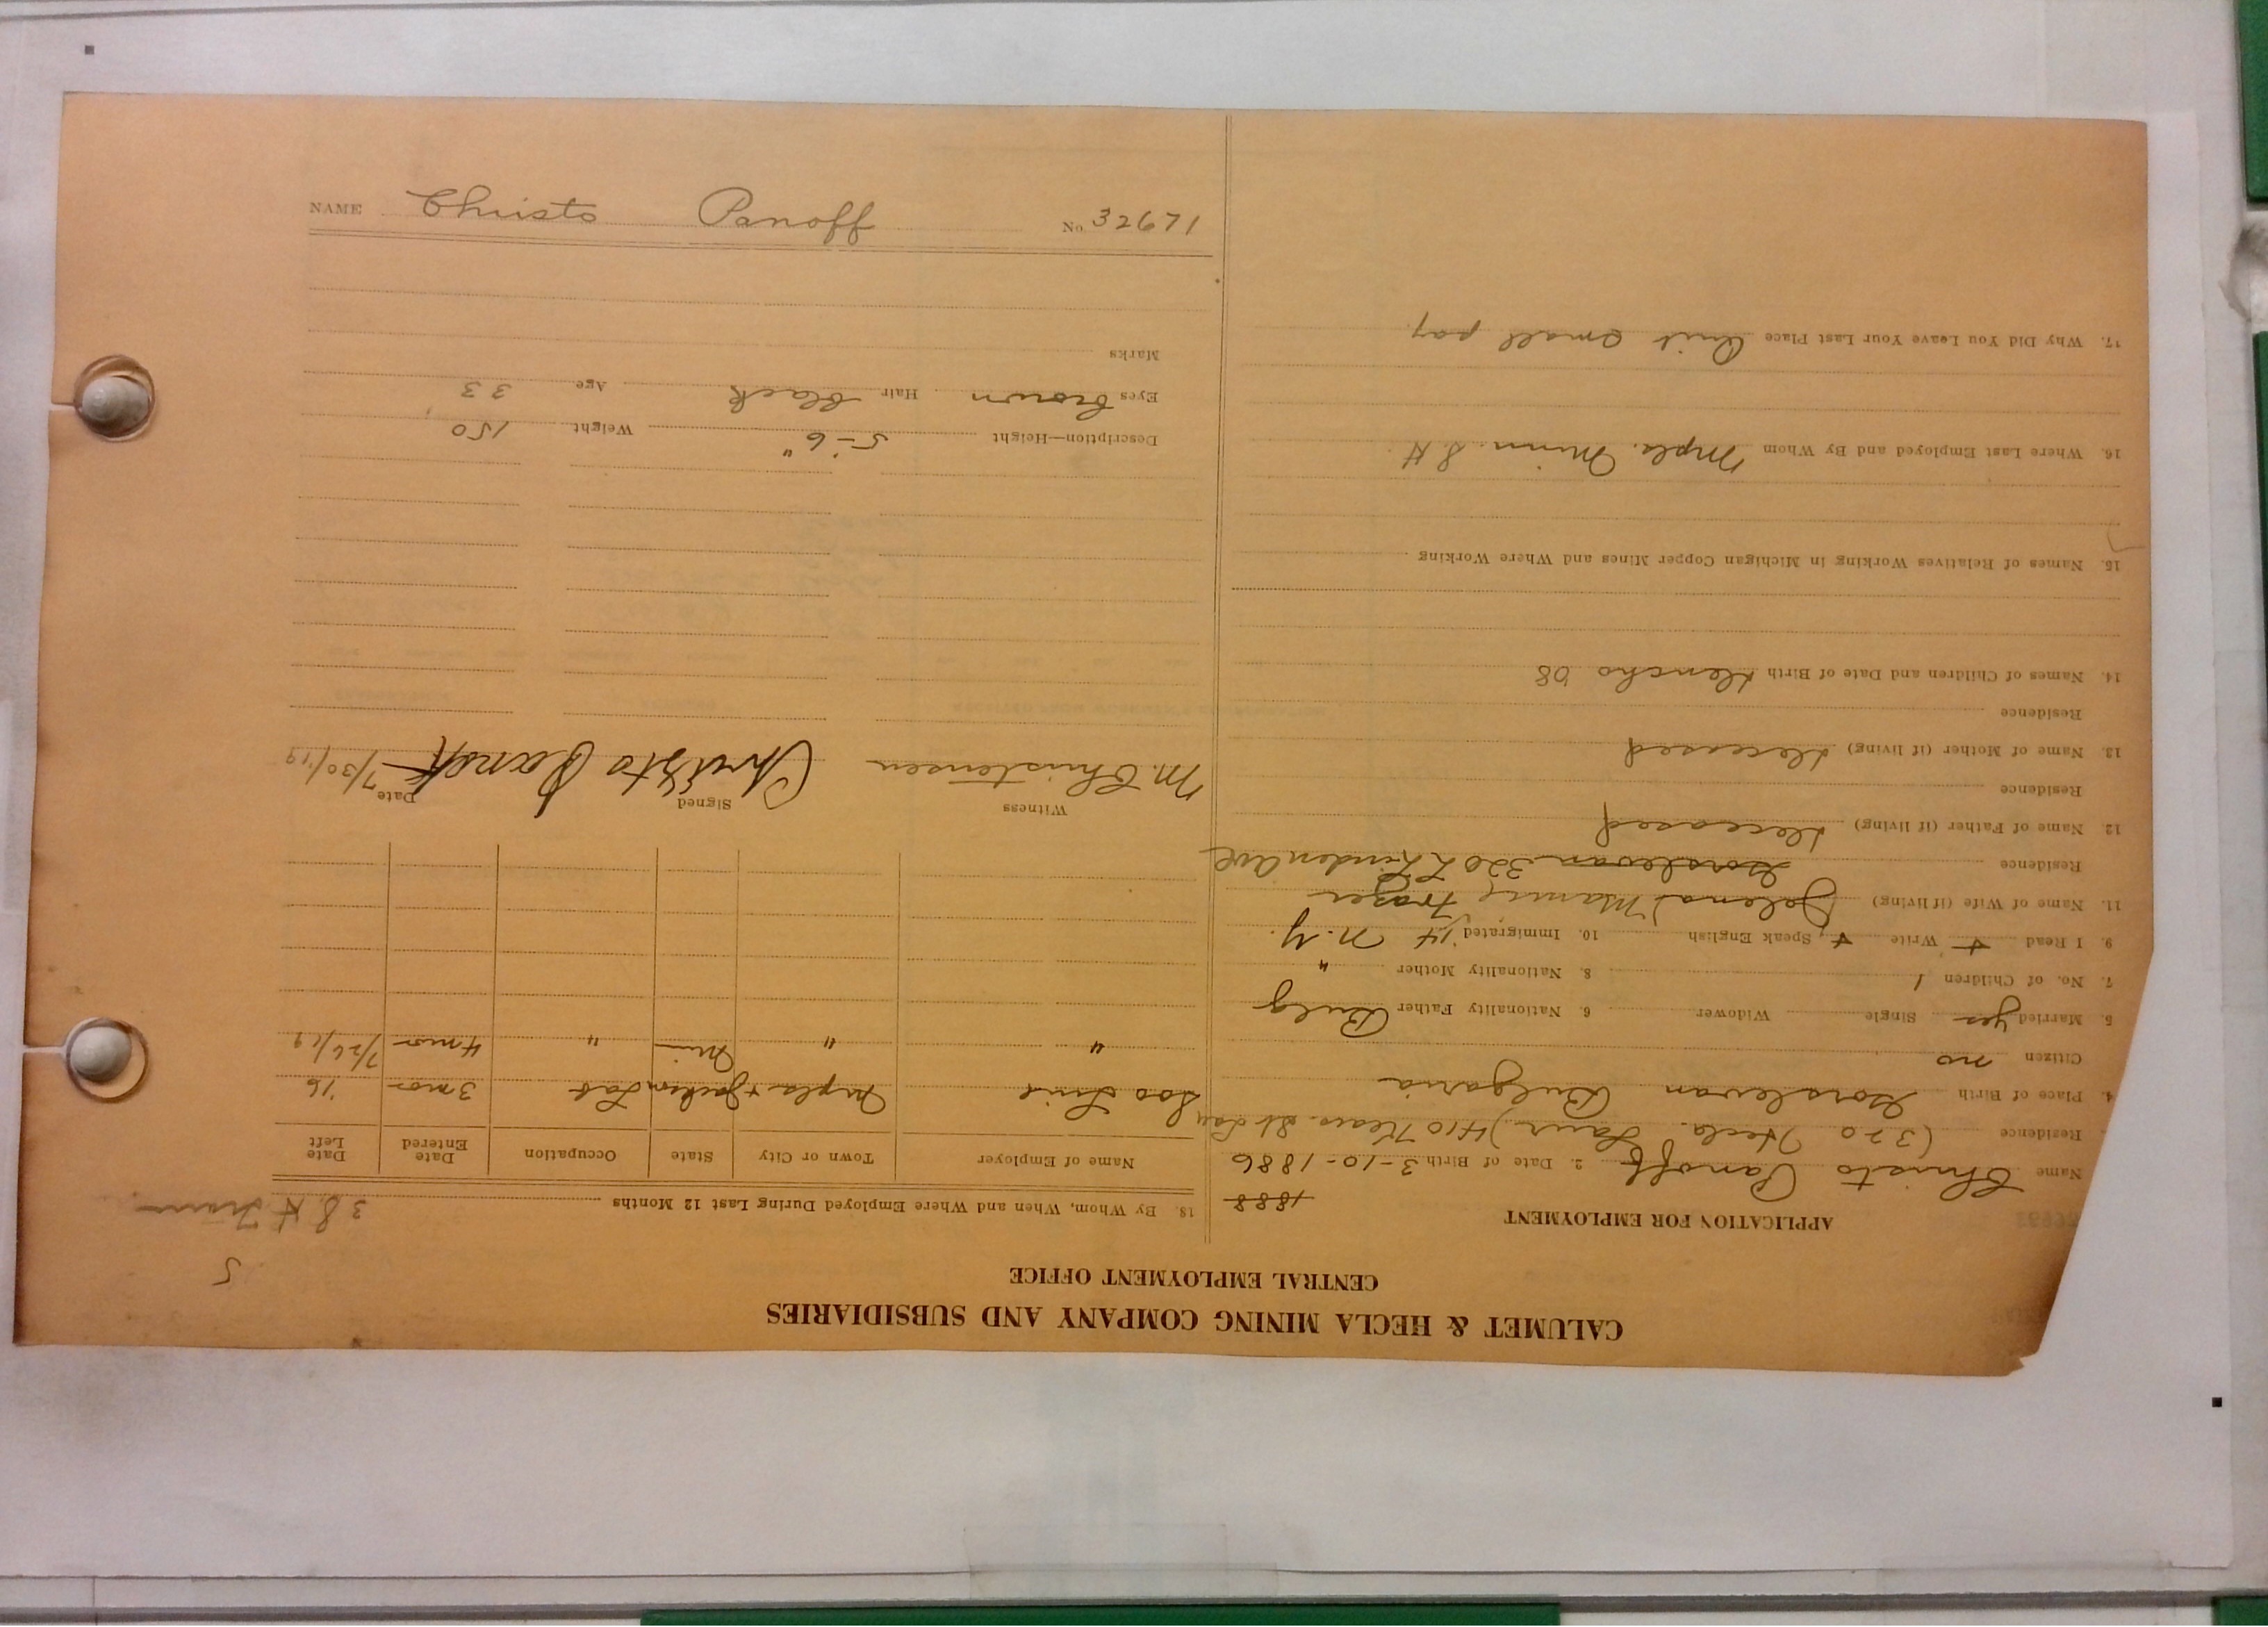 CALUMET & HECLA MINING COMPANY AND SUBSIDIARIES
CENTRAL EMPLOYMENT OFFICE
APPLICATION FOR EMPLOYMENT
1888
Name Christo Panoff 2. Date of Birth 3-10-1886
Residence (320 Hecla. Laur.) 4107 Kear. St Lau
4. Place of Birth Gorslevan Bulgaria
Citizen no
5. Married yes Single Widower 6. Nationality Father Bulg
7. No. of Children 1 8. Nationality Mother "
9. I Read + Write +, Speak English 10. Immigrated '14 N.Y.
11. Name of Wife (if living) (Jelena) Mamie Frazer
Residence Gorslevan 320 L Linden Ave
12. Name of Father (if living) deceased
Residence
13. Name of Mother (if living) deceased
Residence
14. Names of Children and Date of Birth '08
15. Names of Relatives Working in Michigan Copper Mines and Where Working
16. Where Last Employed and By Whom Mpls. Minn.
17. Why Did You Leave Your Last Place Quit small pay
5
38 H Tram
18. By Whom, When and Where Employed During Last 12 Months
Name of Employer Town or City State Occupation Date Entered Date Left
Soo Line Mpls + Lab 3 mos '16
" " Min " 4 mos 7/26/19
Witness Signed Date
M. Christensen Christo Panoff 7/30/'19
Description—Height 5'-6" Weight 150
Eyes brown Hair black Age 33
Marks
NAME Christo Panoff No. 32671